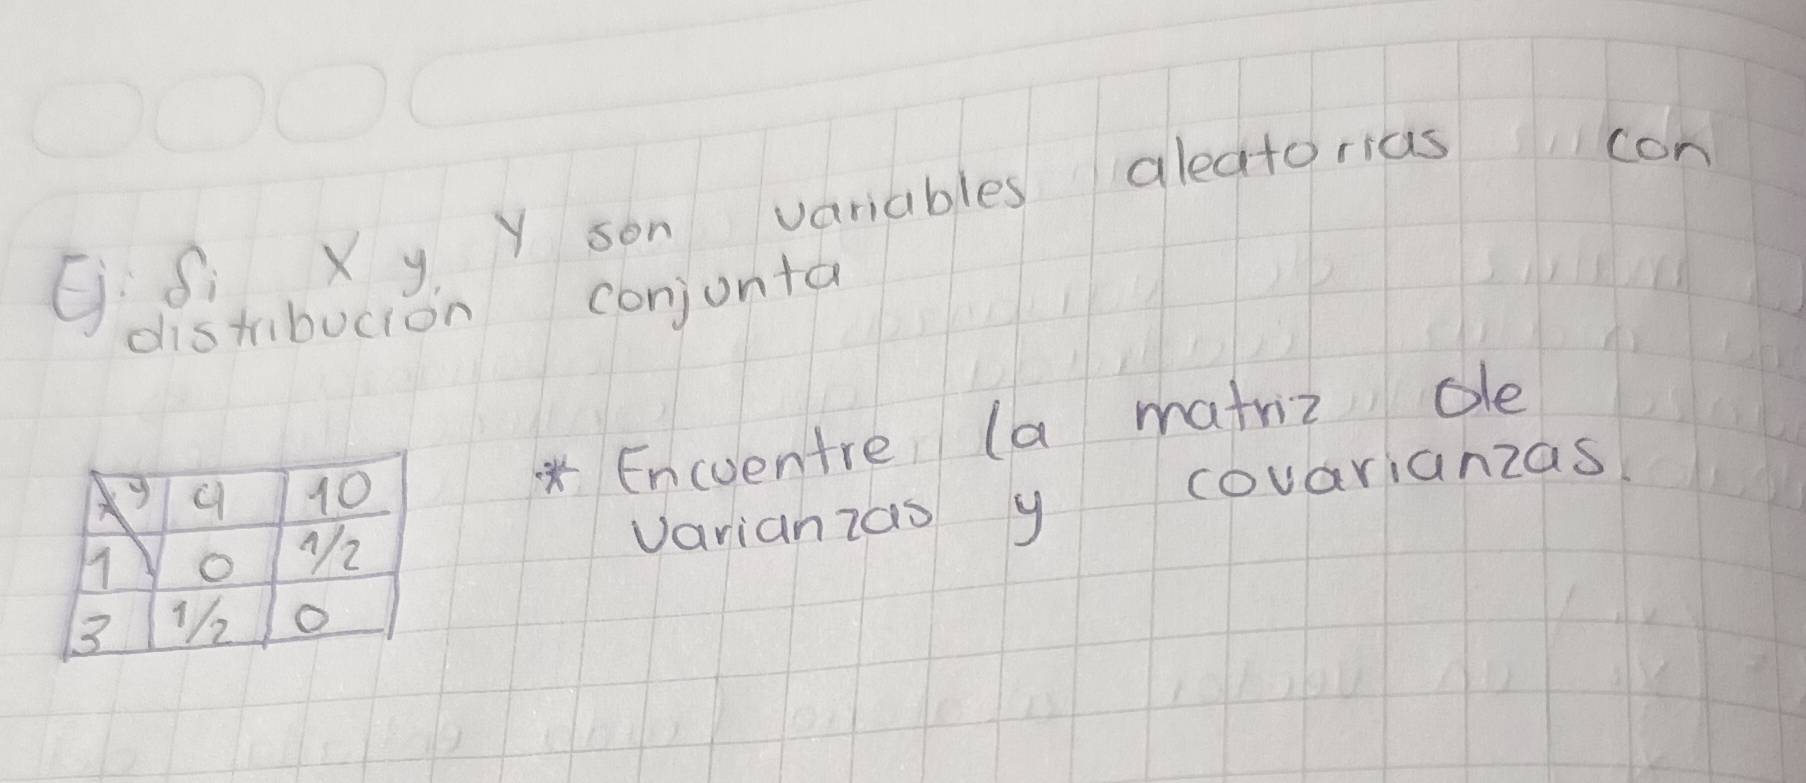 Ej: Si X y Y son variables aleatorias con
distribución conjunta
* Encuentre la matriz de
varianzas y covarianzas.
x y 4 10
1 0 1/2
3 1/2 0